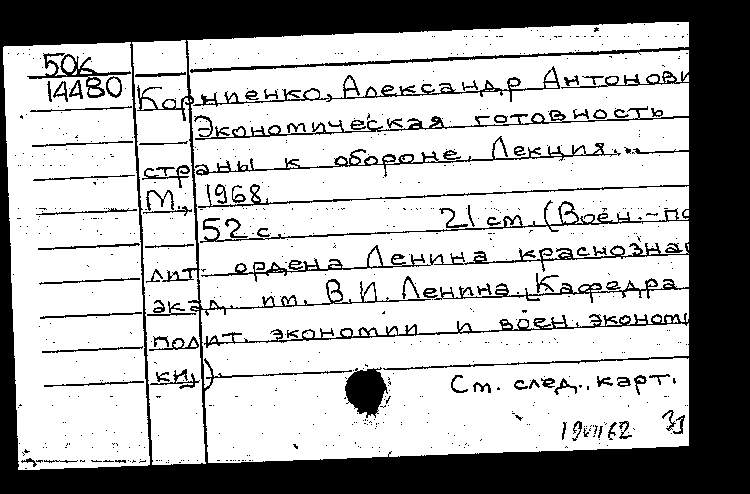 50к
14480
Корниенко, Александр Антонови
Экономическая готовность
страны к обороне. Лекция...
М., 1968.
52 с. 21 см. (Воен.-по
лит. ордена Ленина краснозна
акад. им. В.И. Ленина. Кафедра
полит. экономии и воен. эконом
ки).
См. след. карт.